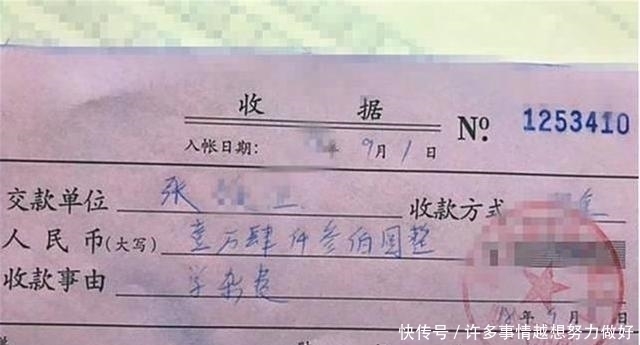 收 据
№ 1253410
入帐日期: 年 9 月 1 日
交款单位 张 收款方式
人民币(大写) 壹万肆仟叁佰圆整
收款事由 学杂费
18 年 9 月
快传号/许多事情越想努力做好